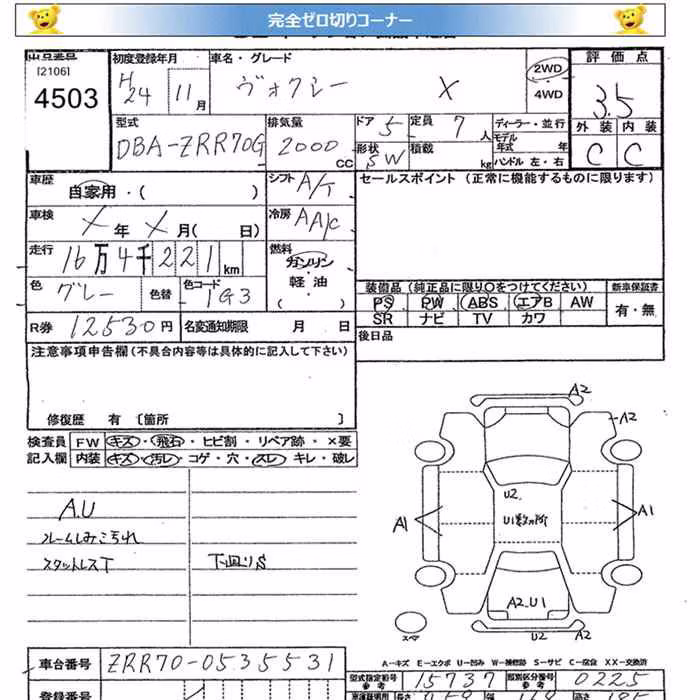 完全ゼロ切りコーナー
出品番号 初度登録年月 車名・グレード 評価点
[2106] 4503 H24 11月 ヴォクシー X 2WD ・ 4WD 3.5
型式 排気量 ドア 5 定員 7人 ディーラー・並行 外装 内装
DBA-ZRR70G 2000CC 形状 5W 積載 kg モデル年式 年 ハンドル 左・右 C C
車歴 自家用・( ) シフト A/T セールスポイント (正常に機能するものに限ります)
車検 X年 X月( 日) 冷房 AA/C
走行 16万4千221km 燃料 ガソリン
色 グレー 色替 色コード 1G3 軽・油 ( )
装備品(純正品に限り○をつけてください) 新車保証書
PS PW ABS エアB AW 有・無
SR ナビ TV カワ
R券 12530円 名変通知期限 月 日 後日品
注意事項申告欄(不具合内容等は具体的に記入して下さい)
修復歴 有 〔箇所 〕
検査員 FW キズ・飛石・ヒビ割・リペア跡・×要
記入欄 内装 キズ・汚レ・コゲ・穴・スレ・キレ・破レ
A.U
ルームしみこ汚れ
スタットレスT 下廻りS
A2
A2
U2
A1 U1数ヵ所 A1
A2.U1
スペア U2 A2
A-キズ E-エクボ U-凹み W-補修跡 S-サビ C-腐食 XX-交換済
車台番号 ZRR70-0535531 型式指定番号 参考 15737 類別区分番号 参考 0225
登録番号 長さ 幅 高さ